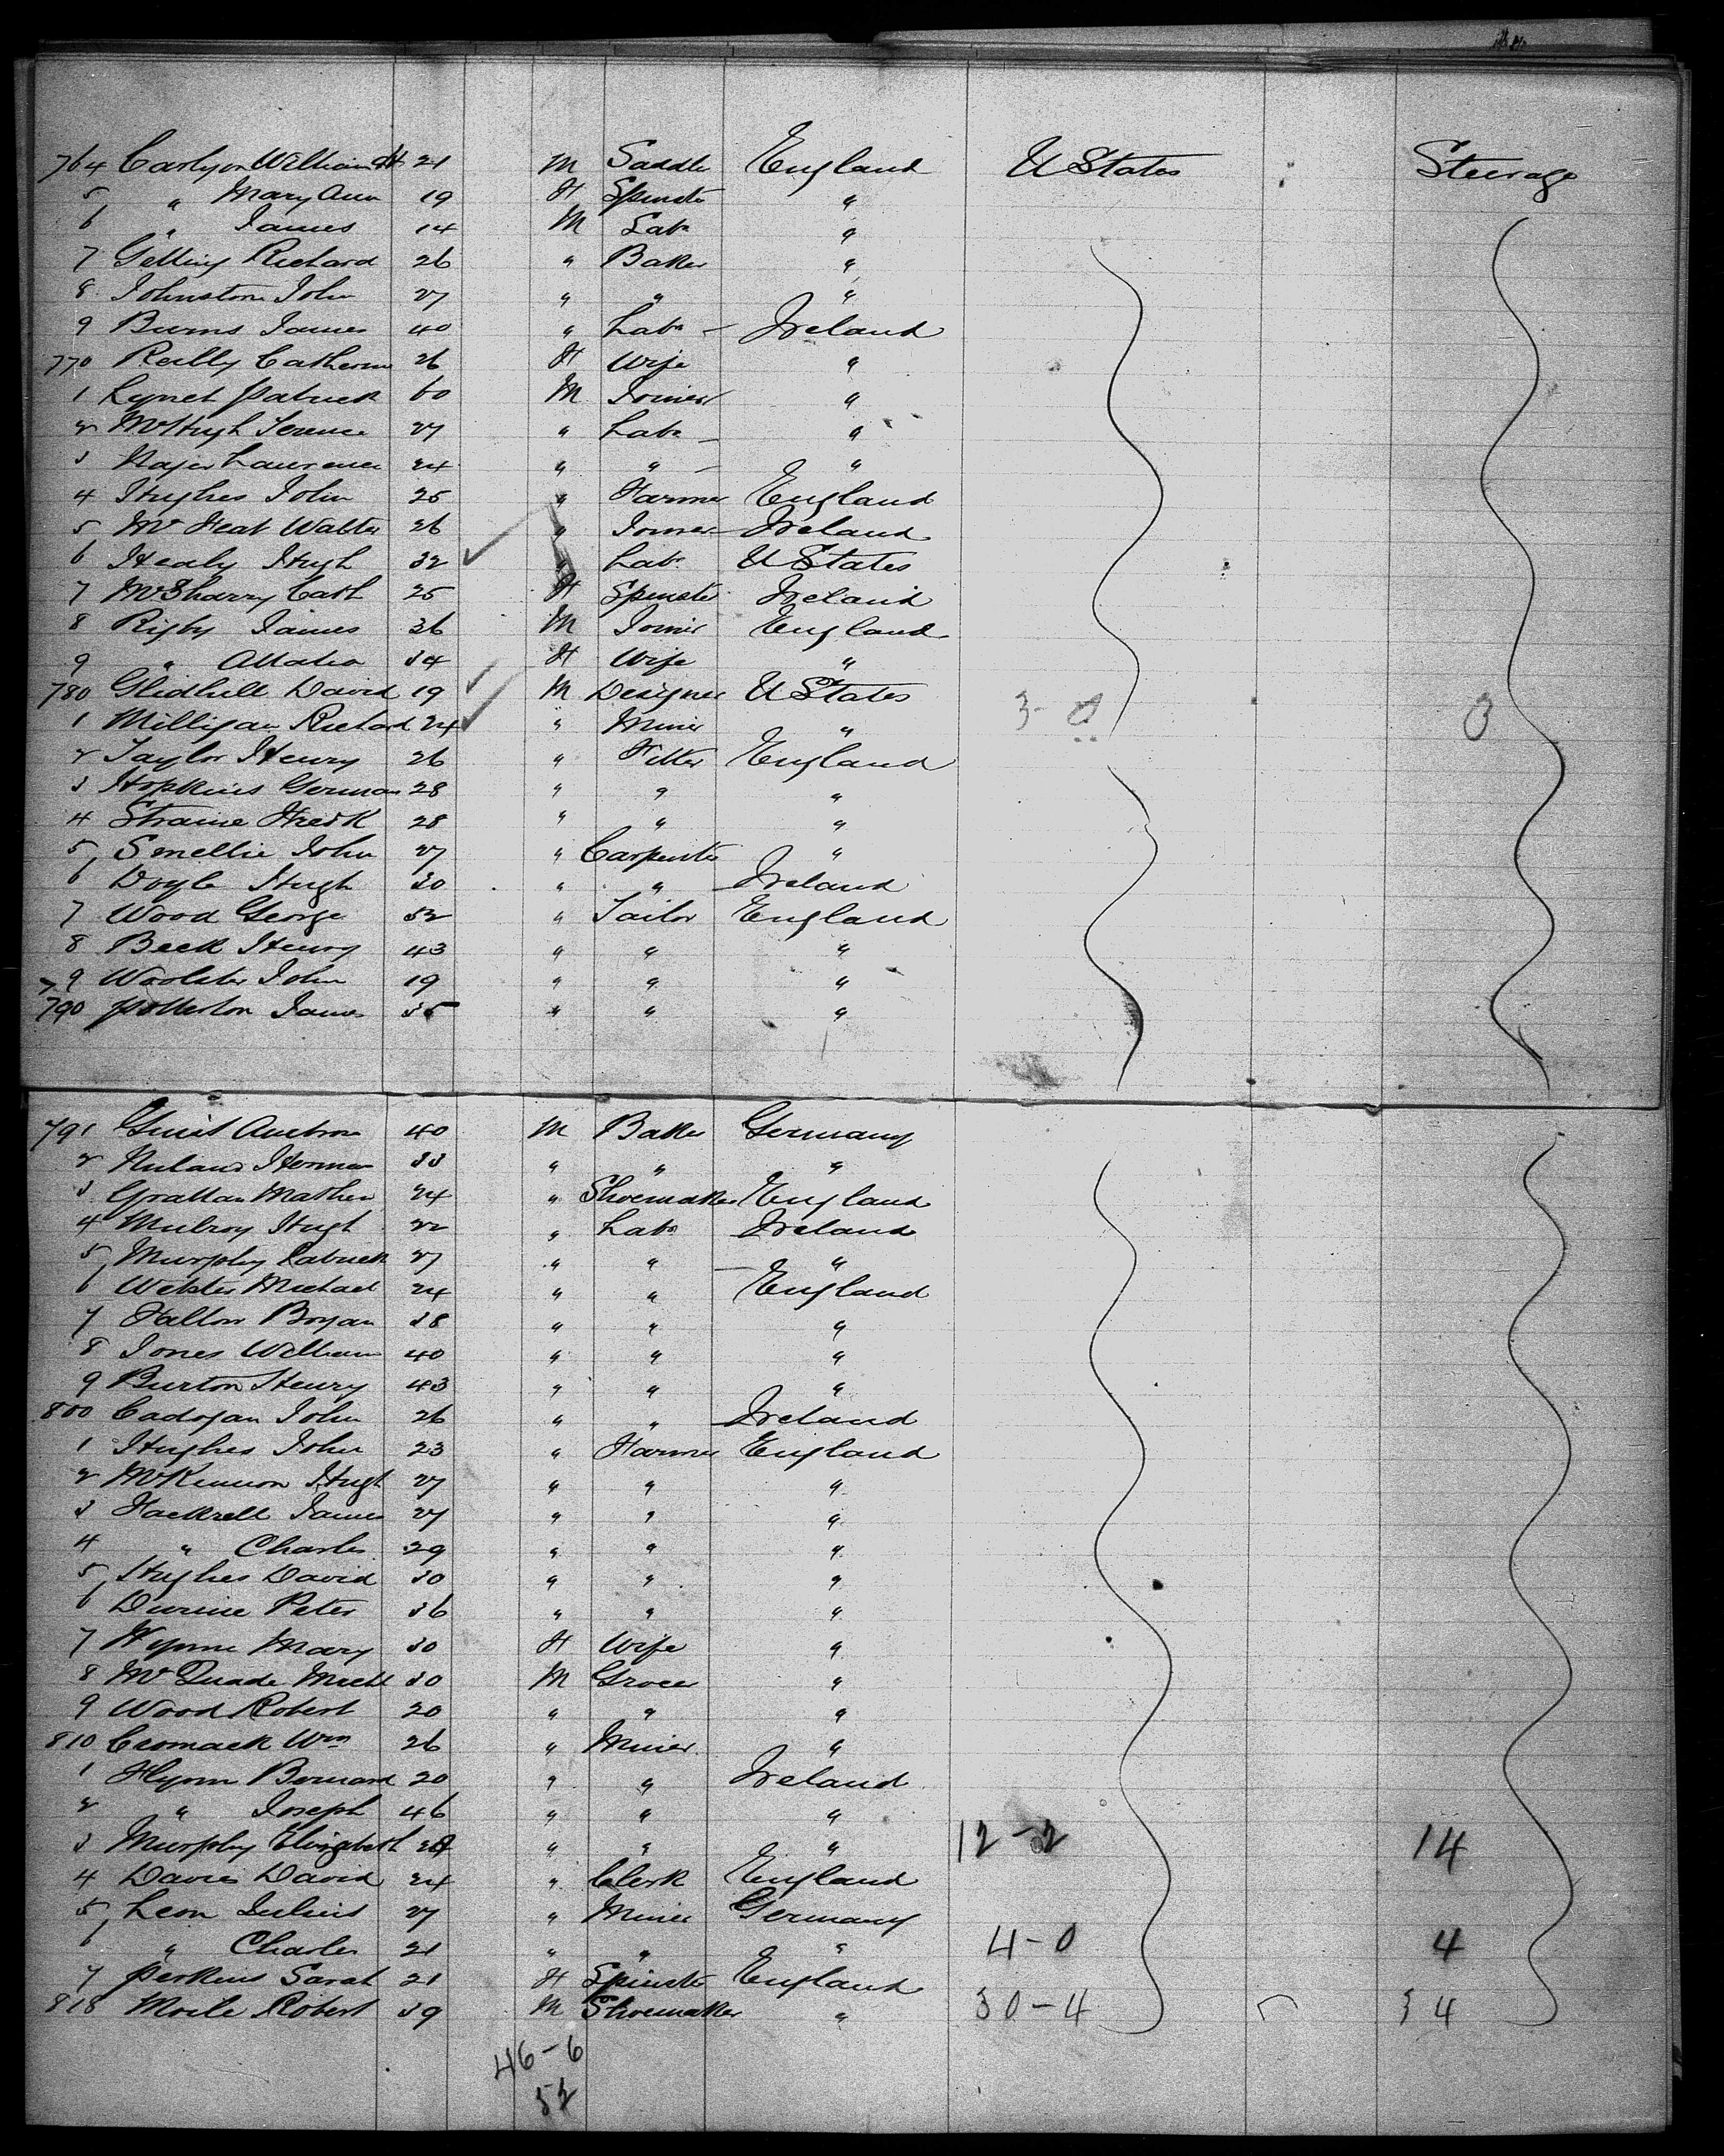 764 Carlyon William 21 M Saddle England U States Steerage
5 " Mary Ann 19 F Spinster "
6 " James 14 M Labr "
7 Gelling Richard 26 " Baker "
8 Johnston John 27 " " "
9 Burns James 40 " Labr - Ireland
770 Reilly Catherine 26 F Wife "
1 Lynch Patrick 60 M Joiner "
2 McHugh Terence 27 " Labr - "
3 Laurence 24 " " - "
4 Hughes John 25 " Farmer England
5 Walter 26 " Joiner Ireland
6 Healy Hugh 32 " Labr U States
7 McSharry Cath 25 F Spinster Ireland
8 Rigby James 36 M Joiner England
9 " 34 F Wife "
780 Glidhill David 19 M Designer U States 3-0 3
1 Milligan Richard 24 " Miner "
2 Taylor Henry 26 " Fitter England
3 Hopkins German 28 " " "
4 Fredk 28 " " "
5 Smellie John 27 " Carpenter "
6 Doyle Hugh 30 " " Ireland
7 Wood George 32 " Tailor England
8 Beck Henry 43 " " "
9 John 19 " " "
790 James 35 " " "
791 40 M Baker Germany
2 Herman 33 " " "
3 Grattan Mathew 24 " Shoemaker England
4 Mulroy Hugh 22 " Labr Ireland
5 Murphy Patrick 27 " " "
6 Webster Michael 24 " " England
7 Fallon Bryan 38 " " "
8 Jones William 40 " " "
9 Burton Henry 43 " " "
800 Cadogan John 26 " " Ireland
1 Hughes John 23 " Farmer England
2 McKinnon Hugh 27 " " "
3 Hackrell James 27 " " "
4 " Charles 29 " " "
5 Hughes David 30 " " "
6 Peter 36 " " "
7 Wynne Mary 30 F Wife "
8 McQuade Michl 30 M Grocer "
9 Wood Robert 20 " " "
810 Cromack Wm 26 " Miner "
1 Flynn Bernard 20 " " Ireland
2 " Joseph 46 " " "
3 Murphy Elizabeth " " " 12-2 14
4 Davies David 24 " Clerk England
5 Leon Julius 27 " Miner Germany
6 " Charles 21 " " " 4-0 4
7 Perkins Sarah 21 F Spinster England
818 Robert 39 M Shoemaker " 30-4 34
46-6
52